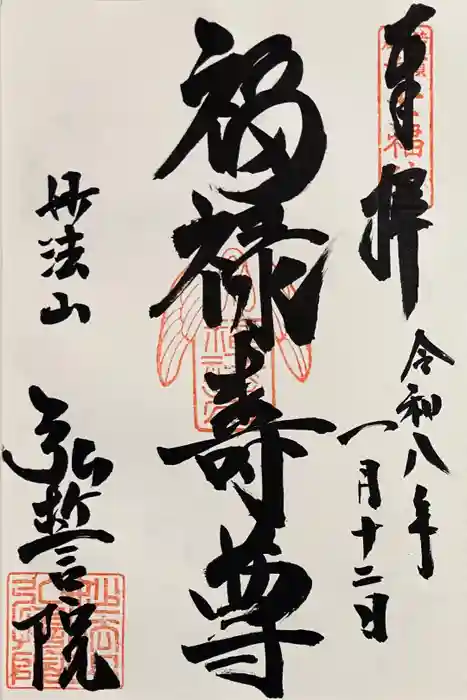 奉拝
令和八年
一月十二日
福禄寿尊
丹法山
弘誓院